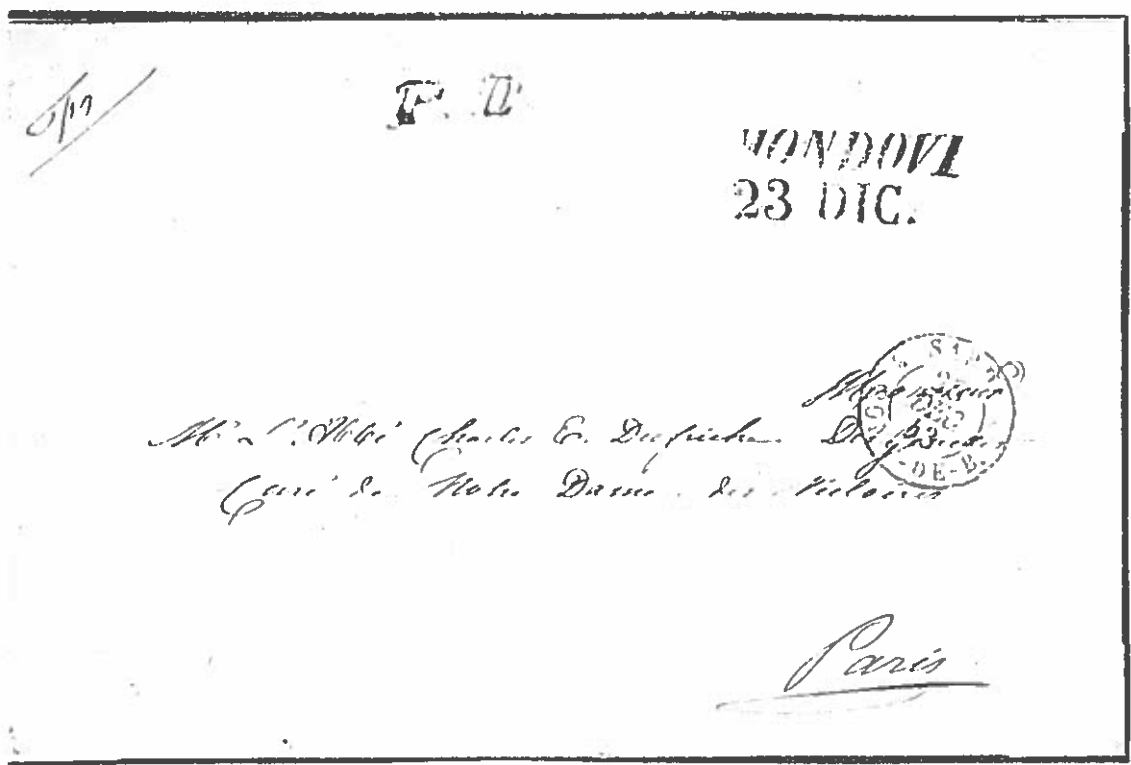 P. D
MONDOVI
23 DIC.
Monsieur
Mr l'Abbé Charles E. Dufriche
Curé de Notre Dame des Victoires
Paris